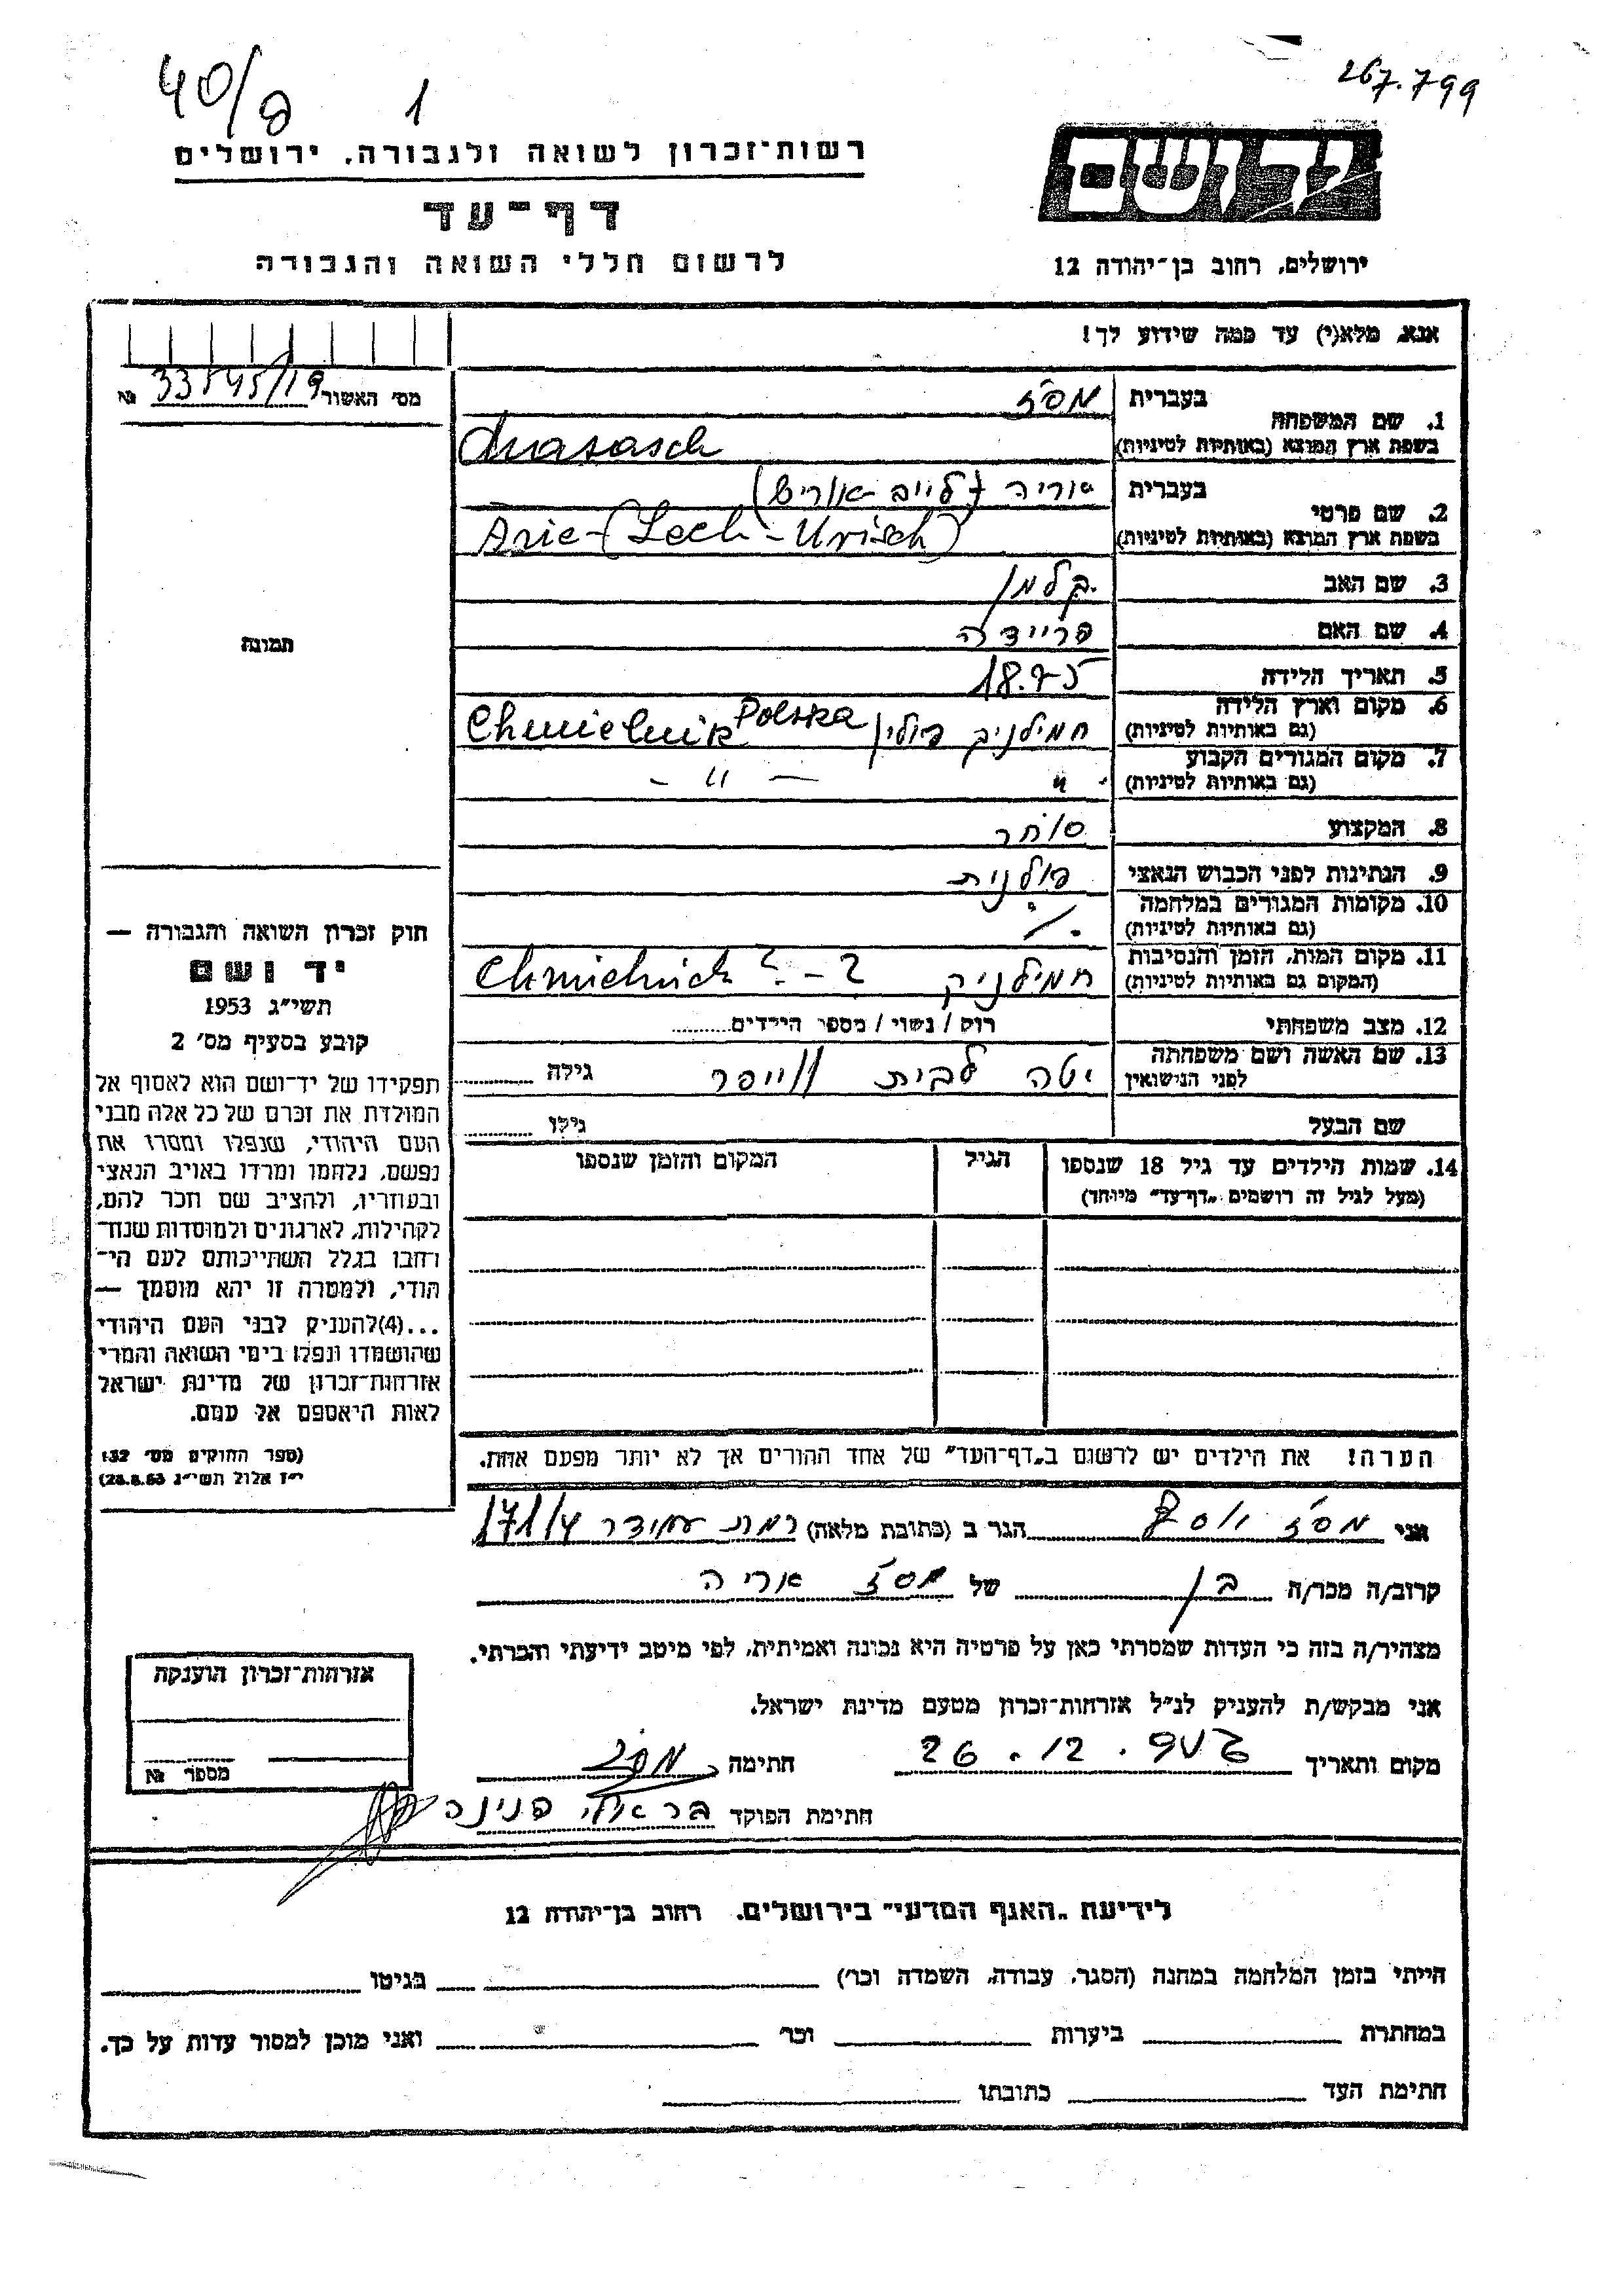 40/8 1
267.799
יד ושם
רשות־זכרון לשואה ולגבורה, ירושלים
דף־עד
לרשום חללי השואה והגבורה
ירושלים, רחוב בן־יהודה 12
אנא, מלא(י) עד כמה שידוע לך!
מס׳ האשור 33545/19 №
1. שם המשפחה
בעברית
בשפת ארץ המוצא (באותיות לטיניות)
2. שם פרטי
בעברית
אוריה (לייב-אוריש)
בשפת ארץ המוצא (באותיות לטיניות) Arie-( -Urisch)
3. שם האב קלמן
4. שם האם פריידה
5. תאריך הלידה 1875
6. מקום וארץ הלידה
(גם באותיות לטיניות) חמילניק פולין Chmielnik Polska
7. מקום המגורים הקבוע
(גם באותיות לטיניות) " — " —
8. המקצוע סוחר
9. הנתינות לפני הכבוש הנאצי פולנית
10. מקומות המגורים במלחמה
(גם באותיות לטיניות) ./.
11. מקום המות, הזמן והנסיבות
(המקום גם באותיות לטיניות) חמילניק Chmielnick ? - ?
12. מצב משפחתי רוק / נשוי / מספר הילדים
13. שם האשה ושם משפחתה
לפני הנישואין יטה לבית גילה
שם הבעל גילו
14. שמות הילדים עד גיל 18 שנספו
(מעל לגיל זה רושמים „דף־עד״ מיוחד)
הגיל
המקום והזמן שנספו
תמונה
חוק זכרון השואה והגבורה —
יד ושם
תשי״ג 1953
קובע בסעיף מס׳ 2
תפקידו של יד־ושם הוא לאסוף אל
המולדת את זכרם של כל אלה מבני
העם היהודי, שנפלו ומסרו את
נפשם, נלחמו ומרדו באויב הנאצי
ובעוזריו, ולהציב שם וזכר להם,
לקהילות, לארגונים ולמוסדות שנח־
רבו בגלל השתייכותם לעם הי־
הודי, ולמטרה זו יהא מוסמך —
...(4)להעניק לבני העם היהודי
שהושמדו ונפלו בימי השואה והמרי
אזרחות־זכרון של מדינת ישראל
לאות היאספם אל עמם.
(ספר החוקים מס׳ 132
י״ז אלול תשי״ג 28.8.53)
הערה! את הילדים יש לרשום ב„דף־העד״ של אחד ההורים אך לא יותר מפעם אחת.
אני יוסף הגר ב (כתובת מלאה) רמת עמידר 171/4
קרוב/ה מכר/ה בן של אריה
מצהיר/ה בזה כי העדות שמסרתי כאן על פרטיה היא נכונה ואמיתית, לפי מיטב ידיעתי והכרתי.
אני מבקש/ת להעניק לנ״ל אזרחות־זכרון מטעם מדינת ישראל.
מקום ותאריך 26.12. חתימה
חתימת הפוקד פנינה
אזרחות־זכרון הוענקה
מספר №
לידיעת „האגף המדעי״ בירושלים, רחוב בן־יהודה 12
הייתי בזמן המלחמה במחנה (הסגר, עבודה, השמדה וכו׳) בגיטו
במחתרת ביערות וכו׳ ואני מוכן למסור עדות על כך.
חתימת העד כתובתו